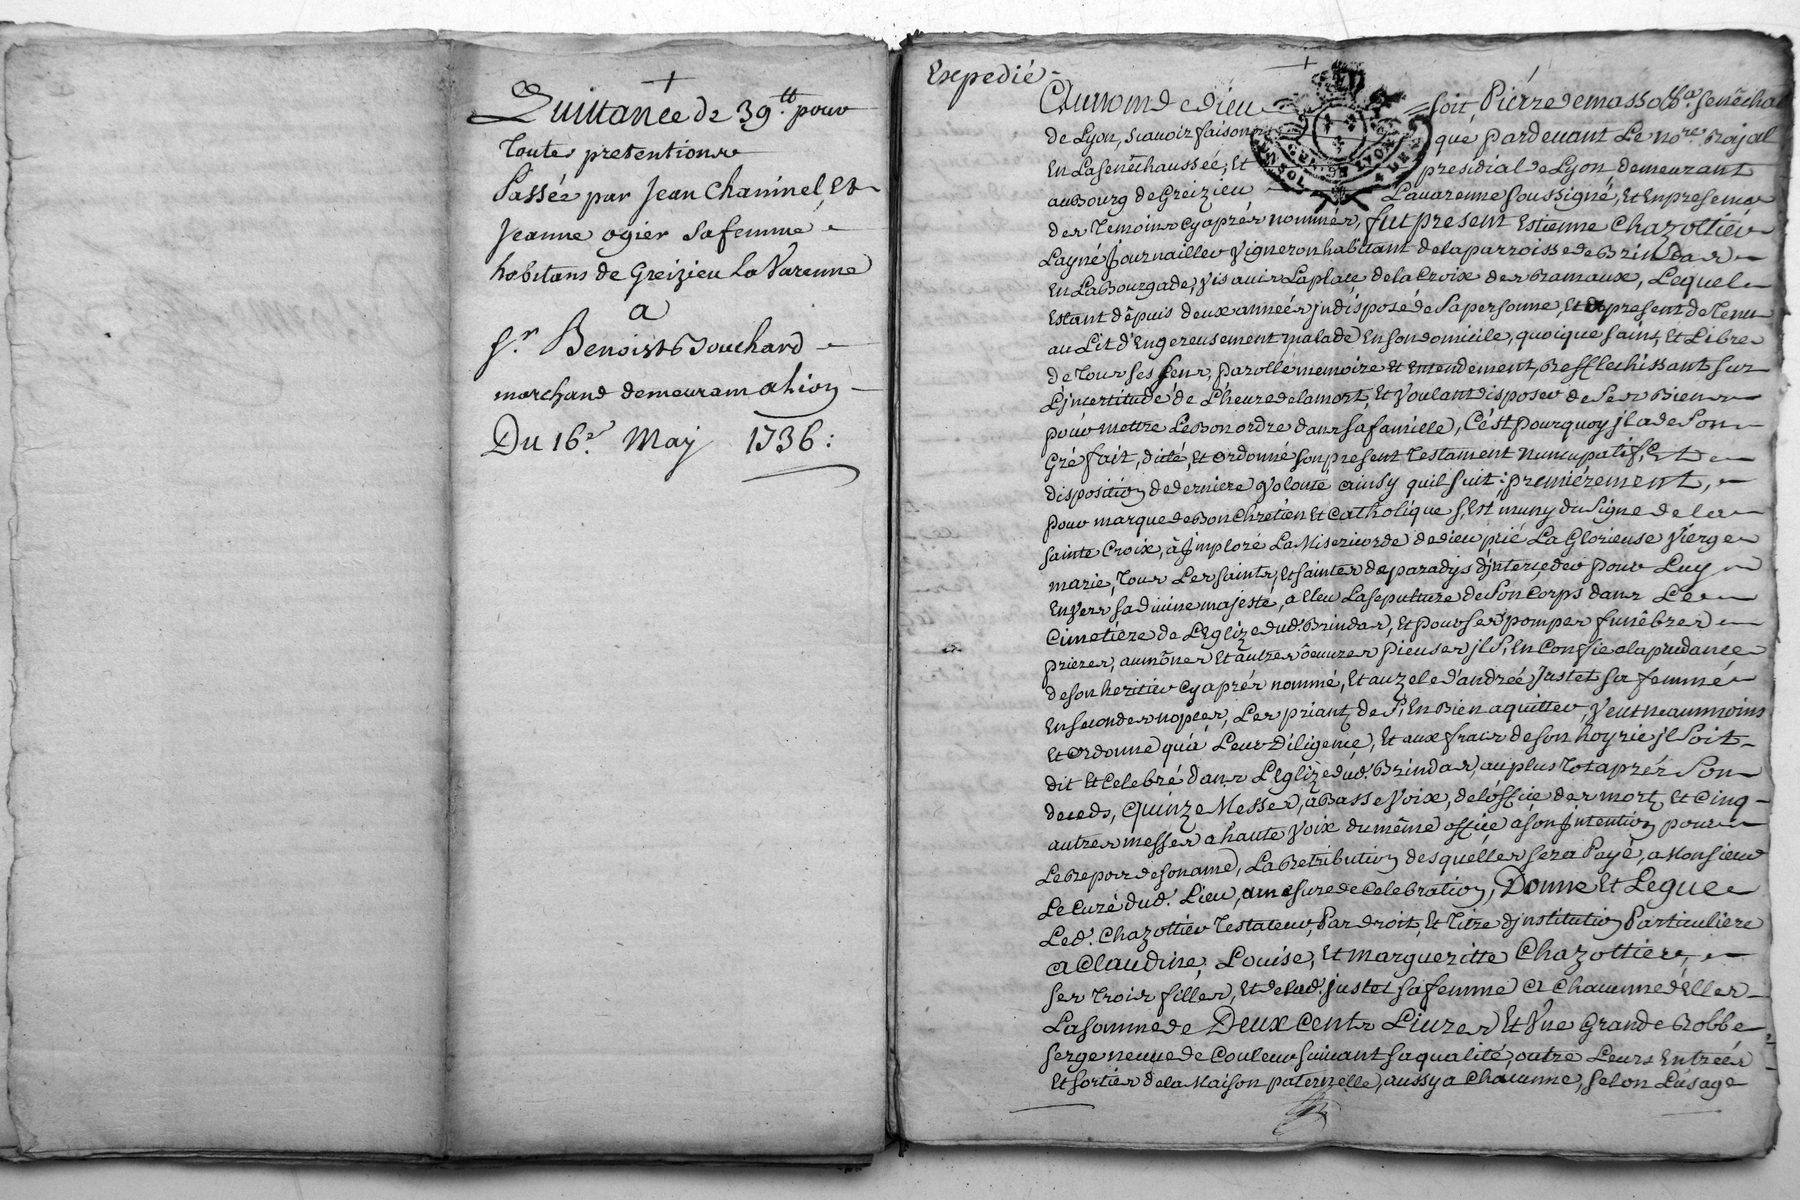 Quittance de 39.tt pour
Toutes pretentions
Passée par Jean Chaninel, Et
Jeanne ogier Sa femme
habitans de Greizieu La Varenne
a
S.r Benoist Bouchard
marchand demeurant a lion
Du 16.e May 1736:
Expedié
Au nom de dieu soit, Pierre de masso senéchal
de Lyon, scavoir faisons que pardevant Le no.re Royal
En La senêchaussée, Et presidial de Lyon demeurant
au Bourg de Greizieu Lavarenne soussigné, Et En presence
des Temoins cy aprés nommés, fut present Estienne Chazottier
Layné Journaillier Vigneron habitant de la parroisse de Brindas
En La Bourgade, Vis a vis La place de la Croix des Rameaux, Lequel
Estant dêpuis deux années jndisposé de Sa personne, Et a present detenu
au Lit d'Engereusement malade En son domicile, quoique sain, Et Libre
de Tous ses sens, parolle memoire Et Entendement, Refflechissant sur
L'jncertitude de L'heure de la mort, Et Voulant disposer de Ses Biens
pour mettre Le Bon ordre dans sa famille, C'est pourquoy jl a de Son
Gré fait, dicté, Et ordonné son present Testament Nuncupatif, Et
disposition de derniere Volonté ainsy quil suit; premiérement,
pour marque de Bon Chretien Et Catholique s'Est muny du Signe de la
sainte Croix, â Jmploré La Misericorde de dieu, prié La Glorieuse Vierge
marie, Tous Les saints, Et saintes de paradys d'jnterceder pour Luy
Envers sa divine majesté, a Eleu La sepulture de Son Corps dans Le
Cimetiere de L'Eglize dud. Brindas, Et pour ses pompes funêbres
prieres, aumônes Et autres ôeuvres pieuses jl s'En Confie a la prudance
de son heritier cy aprés nommé, Et au zele d'andrée Justet sa femme
En secondes nopces, Les priant de s'En Bien aquitter, Veut neanmoins
Et ordonne qu'a Leur Diligence, Et aux frais de son hoyrie jl Soit
dit Et Celebré dans L'Eglize dud. Brindas, au plus Tot aprés Son
deceds, Quinze Messes, a Basse Voix, de L'office des morts Et Cinq
autres messes a haute Voix du même office a son Jntention pour
Le Repos de son ame, La Retribution desquelles sera Payé, a Monsieur
Le Curé dud. Lieu, a mesure de Celebration, Donne Et Legue
Led. Chazottier Testateur, Par droit, Et Titre d'jnstitution Particuliere
a Claudine, Louise, Et margueritte Chazottiere,
ses Trois filles, Et de lad. justet sa femme a Chacunne d'Elles
La somme de Deux Cents Livres Et Vne Grande Robbe
serge neuve de Couleur suivant sa qualité, outre Leurs Entrées
Et sorties de la Maison paternelle, aussy a Chacunne, selon L'usage